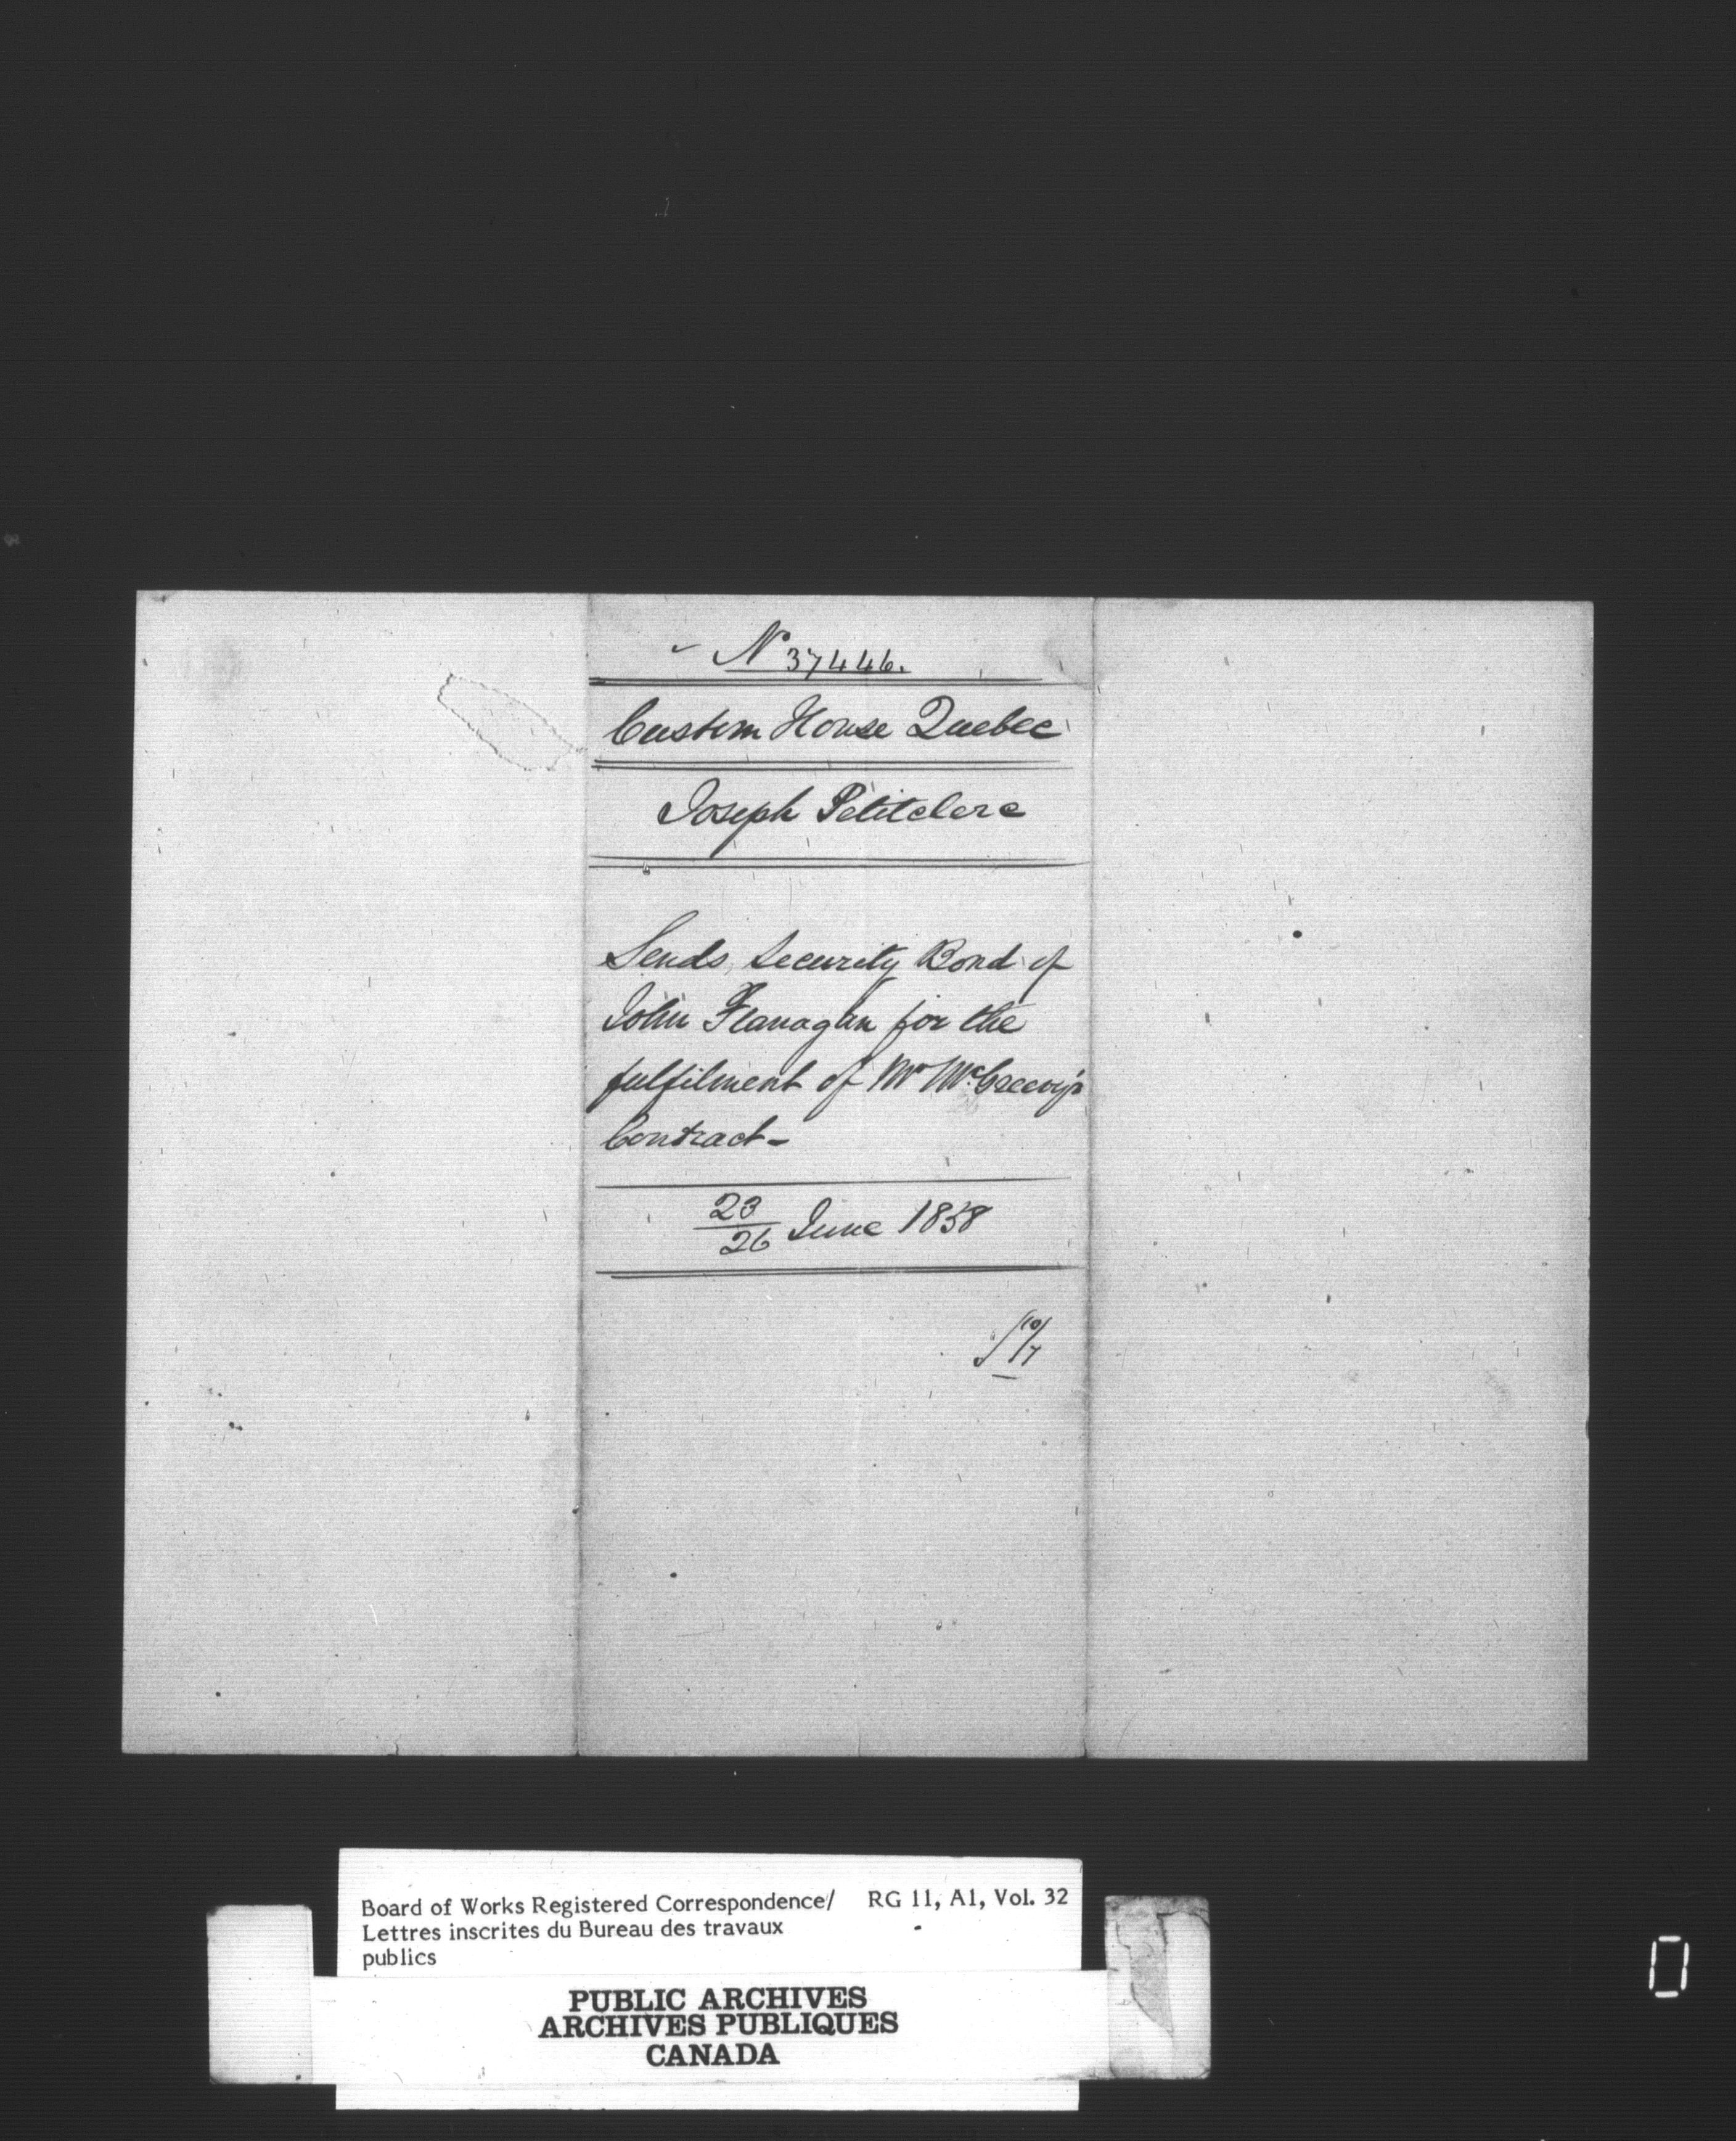 No 37446.
Custom House Quebec
Joseph Petitclerc
Sends Security Bond of
John Flanagan for the
fulfilment of Mr McGreevy's
Contract -
23/26 June 1858
10/7
Board of Works Registered Correspondence/ RG 11, A1, Vol. 32
Lettres inscrites du Bureau des travaux
publics
PUBLIC ARCHIVES
ARCHIVES PUBLIQUES
CANADA